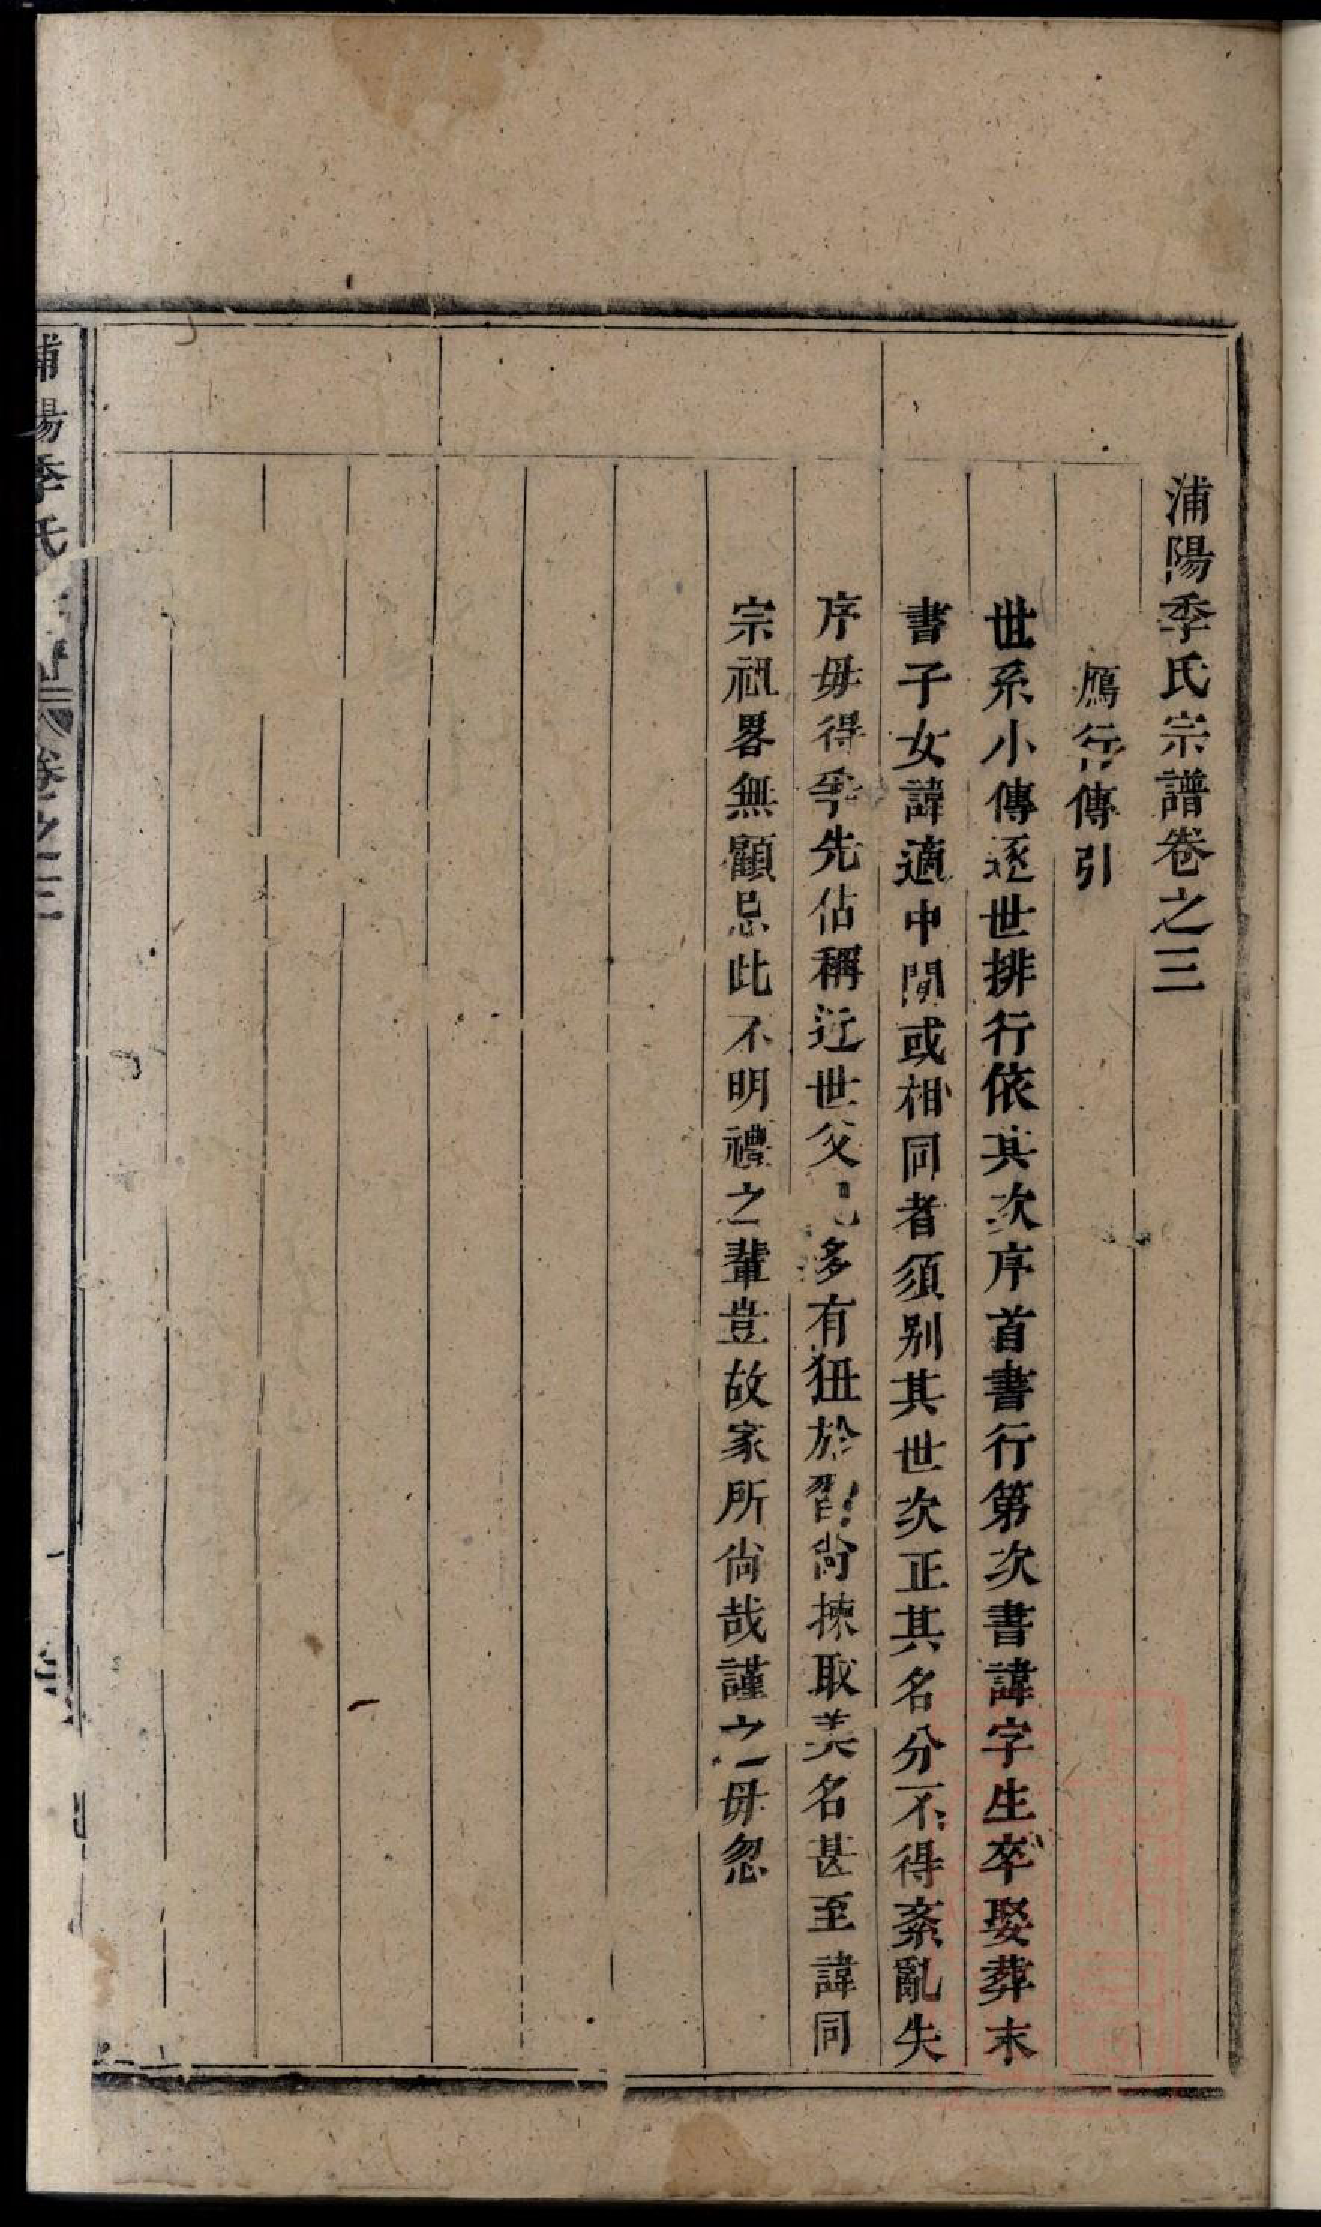 浦陽季氏宗譜卷之三
鴈行傳引
世系小傳逐世排行依其次序首書行第次書諱字生卒娶葬末
書子女諱適中間或相同者須别其世次正其名分不得紊亂失
序毋得爭先佔稱近世父兄多有狃於習尚揀取美名甚至諱同
宗祖畧無顧忌此不明禮之輩豈故家所尚哉謹之毋忽
浦陽季氏宗譜卷之三